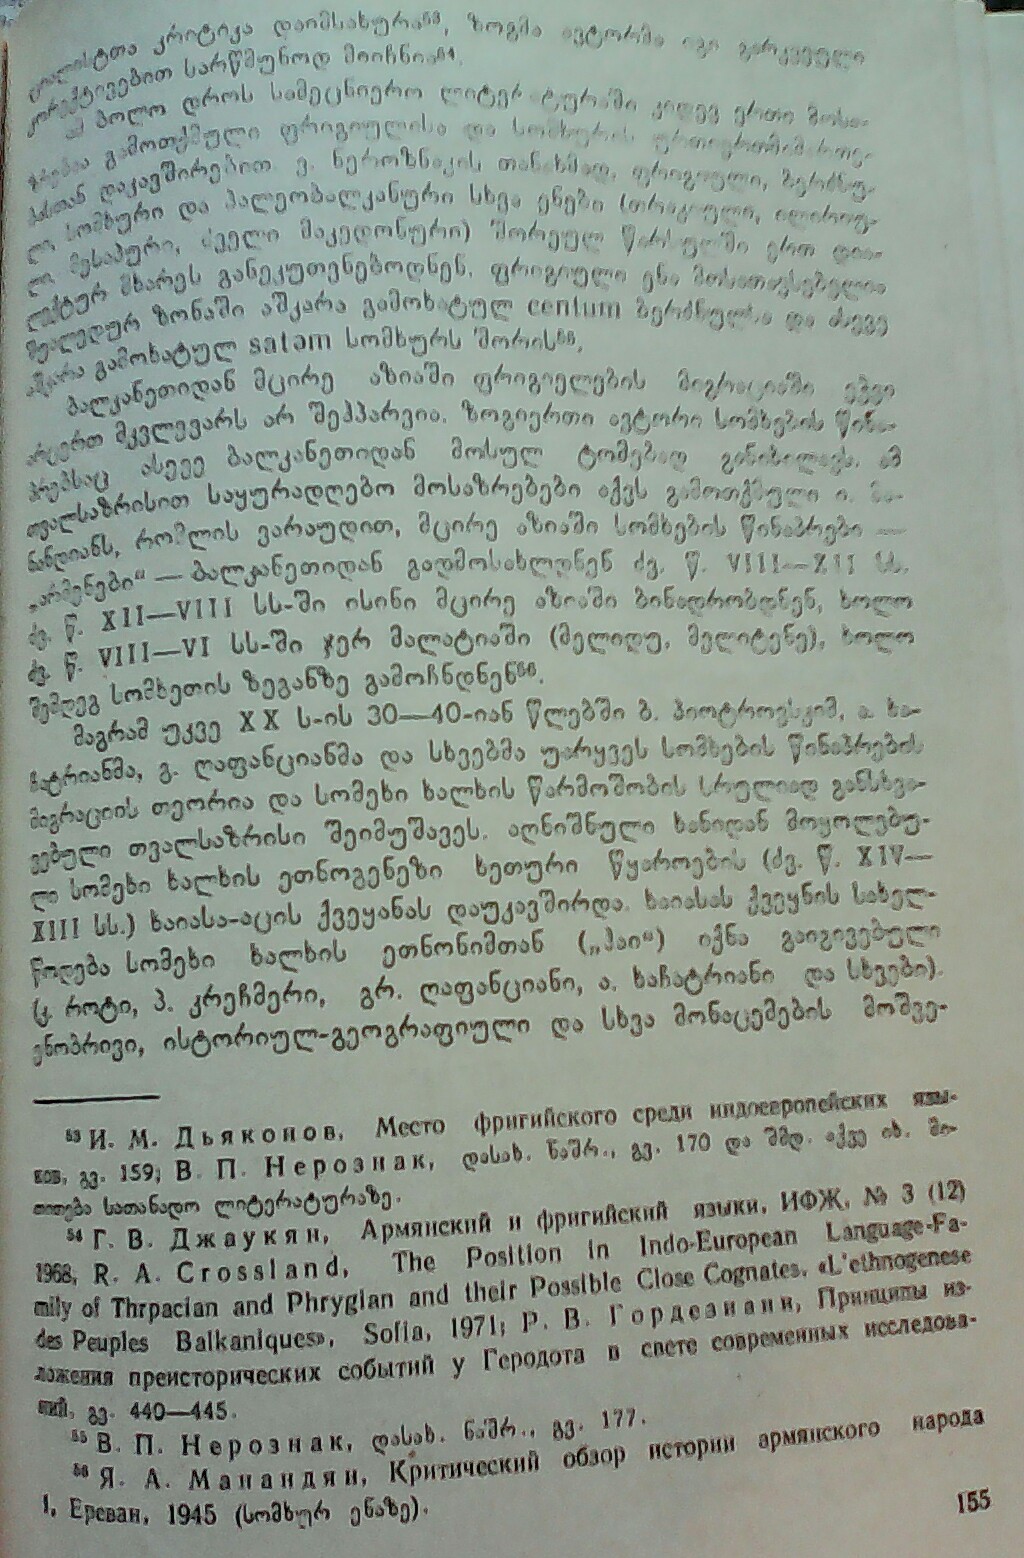 ციალისტთა კრიტიკა დაიმსახურა⁵³, ზოგმა ავტორმა იგი გარკვეული
კორექტივებით სარწმუნოდ მიიჩნია⁵⁴.
ამ ბოლო დროს სამეცნიერო ლიტერატურაში კიდევ ერთი მოსა-
ზრებაა გამოთქმული ფრიგიულისა და სომხურის ურთიერთმიმართე-
ბასთან დაკავშირებით. ვ. ნეროზნაკის თანახმად, ფრიგიული, ბერძნუ-
ლი, სომხური და პალეობალკანური სხვა ენები (თრაკიული, ილირიუ-
ლი, მესაპური, ძველი მაკედონური) შორეულ წარსულში ერთ დია-
ლექტურ მხარეს განეკუთვნებოდნენ. ფრიგიული ენა მოსათავსებელია
შუალედურ ზონაში აშკარა გამოხატულ centum ბერძნულსა და ასევე
აშკარა გამოხატულ satəm სომხურს შორის⁵⁵.
ბალკანეთიდან მცირე აზიაში ფრიგიელების მიგრაციაში ეჭვი
არცერთ მკვლევარს არ შეჰპარვია. ზოგიერთი ავტორი სომხების წინა-
პრებსაც ასევე ბალკანეთიდან მოსულ ტომებად განიხილავს. ამ
თვალსაზრისით საყურადღებო მოსაზრებები აქვს გამოთქმული ი. მა-
ნანდიანს, რომლის ვარაუდით, მცირე აზიაში სომხების წინაპრები —
„არმენები“ — ბალკანეთიდან გადმოსახლდნენ ძვ. წ. VIII—XII სს.
ძვ. წ. XII—VIII სს-ში ისინი მცირე აზიაში ბინადრობდნენ, ხოლო
ძვ. წ. VIII—VI სს-ში ჯერ მალატიაში (მელიდუ, მელიტენე), ხოლო
შემდეგ სომხეთის ზეგანზე გამოჩნდნენ⁵⁶.
მაგრამ უკვე XX ს-ის 30—40-იან წლებში ბ. პიოტროვსკიმ, ა. ხა-
ჩატრიანმა, გ. ღაფანციანმა და სხვებმა უარყვეს სომხების წინაპრების
მიგრაციის თეორია და სომეხი ხალხის წარმოშობის სრულიად განსხვა-
ვებული თვალსაზრისი შეიმუშავეს. აღნიშნული ხანიდან მოყოლებუ-
ლი სომეხი ხალხის ეთნოგენეზი ხეთური წყაროების (ძვ. წ. XIV—
XIII სს.) ხაიასა-აცის ქვეყანას დაუკავშირდა. ხაიასას ქვეყნის სახელ-
წოდება სომეხი ხალხის ეთნონიმთან („ჰაი“) იქნა გაიგივებული
(კ. როტი, პ. კრეჩმერი, გრ. ღაფანციანი, ა. ხაჩატრიანი და სხვები).
ენობრივი, ისტორიულ-გეოგრაფიული და სხვა მონაცემების მოშვე-
⁵³ И. М. Дьяконов, Место фригийского среди индоевропейских язы-
ков, გვ. 159; В. П. Нерознак, დასახ. ნაშრ., გვ. 170 და შმდ. აქვე იხ. მი-
თითება სათანადო ლიტერატურაზე.
⁵⁴ Г. В. Джаукян, Армянский и фригийский языки, ИФЖ, № 3 (12)
1968, R. A. Crossland, The Position in Indo-European Language-Fa-
mily of Thrpacian and Phrygian and their Possible Close Cognates, «L'ethnogenese
des Peuples Balkaniques», Sofia, 1971; Р. В. Гордезиани, Принципы из-
ложения преисторических событий у Геродота в свете современных исследова-
ний, გვ. 440—445.
⁵⁵ В. П. Нерознак, დასახ. ნაშრ., გვ. 177.
⁵⁶ Я. А. Манандян, Критический обзор истории армянского народа
I, Ереван, 1945 (სომხურ ენაზე).
155